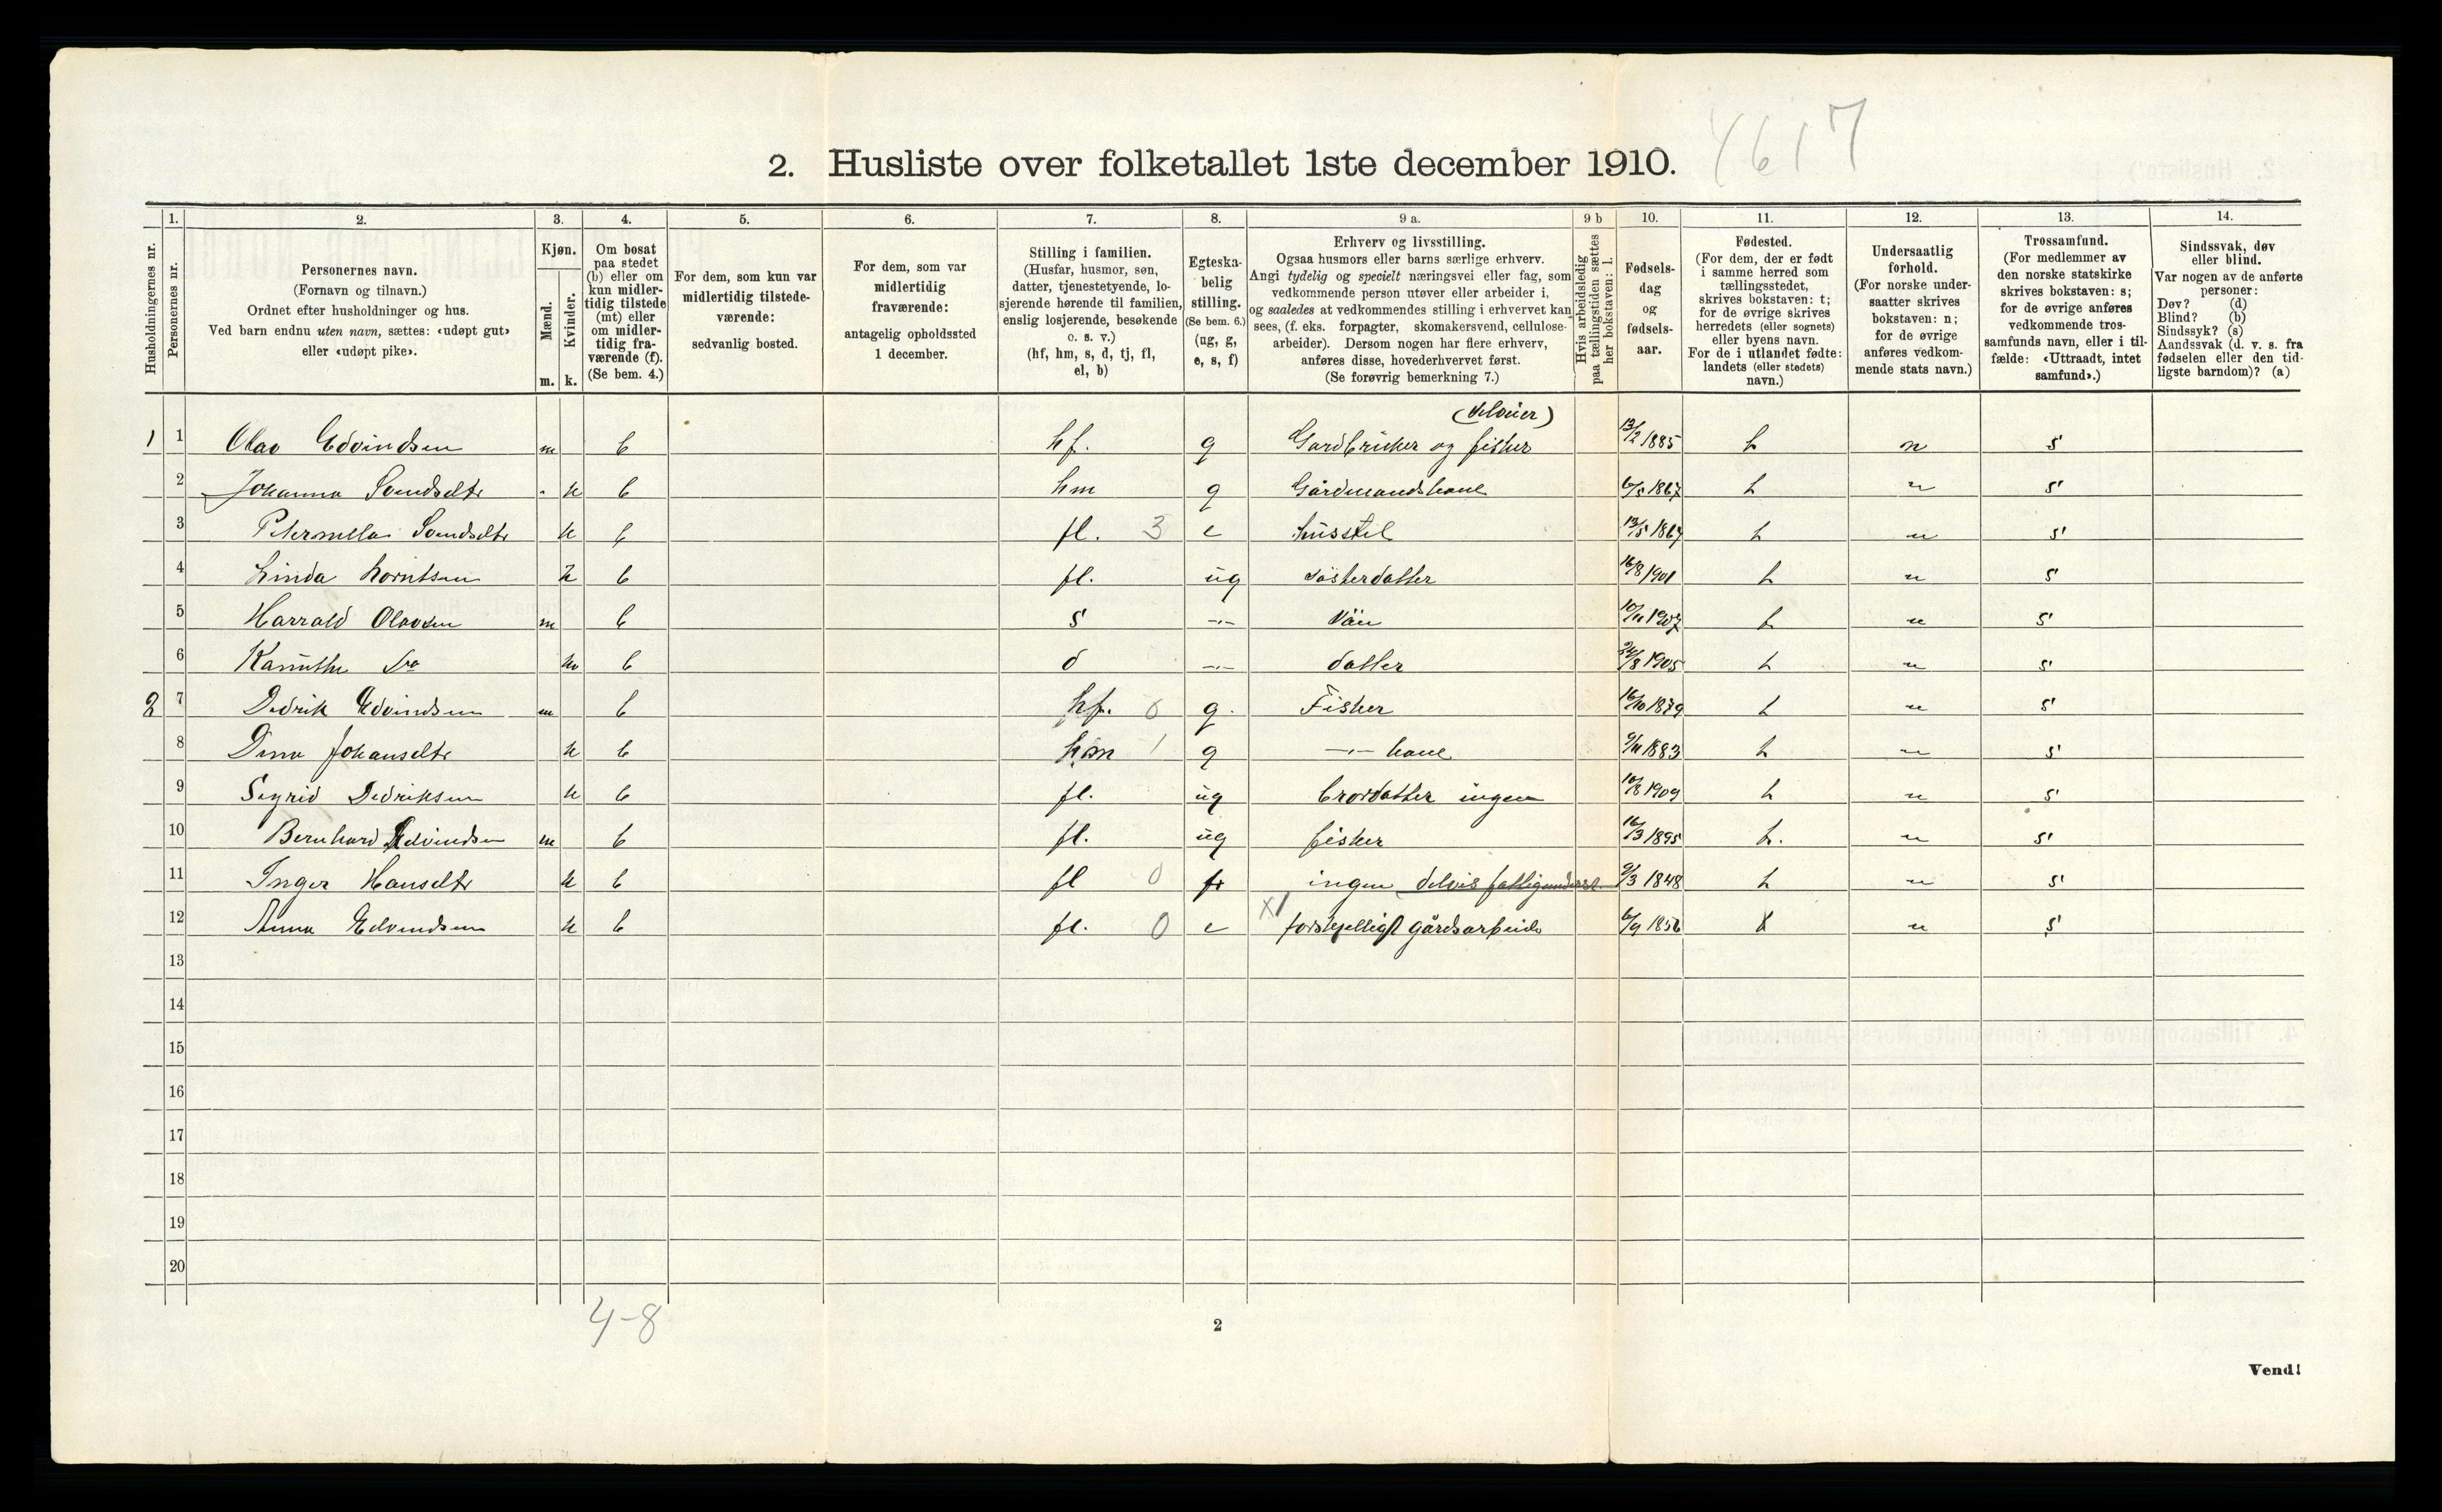 4617
2. Husliste over folketallet 1ste december 1910.
Husholdningernes nr.
1. Personernes nr.
2. Personernes navn.
(Fornavn og tilnavn.)
Ordnet efter husholdninger og hus.
Ved barn endnu uten navn, sættes: «udøpt gut»
eller «udøpt pike».
3. Kjøn.
Mænd. m.
Kvinder. k.
4. Om bosat
paa stedet
(b) eller om
kun midler-
tidig tilstede
(mt) eller
om midler-
tidig fra-
værende (f).
(Se bem. 4.)
5. For dem, som kun var
midlertidig tilstede-
værende:
sedvanlig bosted.
6. For dem, som var
midlertidig
fraværende:
antagelig opholdssted
1 december.
7. Stilling i familien.
(Husfar, husmor, søn,
datter, tjenestetyende, lo-
sjerende hørende til familien,
enslig losjerende, besøkende
o. s. v.)
(hf, hm, s, d, tj, fl,
el, b)
8. Egteska-
belig
stilling.
(Se bem. 6.)
(ug, g,
e, s, f)
9 a. Erhverv og livsstilling.
Ogsaa husmors eller barns særlige erhverv.
Angi tydelig og specielt næringsvei eller fag, som
vedkommende person utøver eller arbeider i,
og saaledes at vedkommendes stilling i erhvervet kan
sees, (f. eks. forpagter, skomakersvend, cellulose-
arbeider). Dersom nogen har flere erhverv,
anføres disse, hovederhvervet først.
(Se forøvrig bemerkning 7.)
9 b Hvis arbeidsledig
paa tællingstiden sættes
her bokstaven: l.
10. Fødsels-
dag
og
fødsels-
aar.
11. Fødested.
(For dem, der er født
i samme herred som
tællingsstedet,
skrives bokstaven: t;
for de øvrige skrives
herredets (eller sognets)
eller byens navn.
For de i utlandet fødte:
landets (eller stedets)
navn.)
12. Undersaatlig
forhold.
(For norske under-
saatter skrives
bokstaven: n;
for de øvrige
anføres vedkom-
mende stats navn.)
13. Trossamfund.
(For medlemmer av
den norske statskirke
skrives bokstaven: s;
for de øvrige anføres
vedkommende tros-
samfunds navn, eller i til-
fælde: «Uttraadt, intet
samfund».)
14. Sindssvak, døv
eller blind.
Var nogen av de anførte
personer:
Døv? (d)
Blind? (b)
Sindssyk? (s)
Aandssvak (d. v. s. fra
fødselen eller den tid-
ligste barndom)? (a)
1 1 Olav Edvindsen m b hf. g Gardbruker og fisker 13/2 1885 t n s
2 Johanna k b hm g Gårdmandskone 1867 t n s
3 k b fl. 3 e Husstel 13/5 t n s
4 Linda Lorntsen k b fl. ug søsterdatter 16/8 1901 t n s
5 Harrald Olavsen m b s -"- sön 10/11 1907 t n s
6 b d -"- datter 24/8 1905 t n s
2 7 Dedrik Edvindsen m b hf. 0 g. Fisker 1879 t n s
8 Dina Johansdtr k b hm 1 g -"- kone 1883 t n s
9 Sigrid Dedriksen k b fl. ug brordatter ingen 10/8 1909 t n s
10 Bernhard Edvindsen m b fl. ug fisker 16/3 1895 t. n s
11 Inger Hansdtr k b fl 0 ingen delvis fattigunderst 9/3 1848 t n s
12 Anna Edvindsen k b fl. 0 e forskjelligt gårdsarbeide 6/9 n s
13
14
15
16
17
18
19
20
4-8
2
Vend!